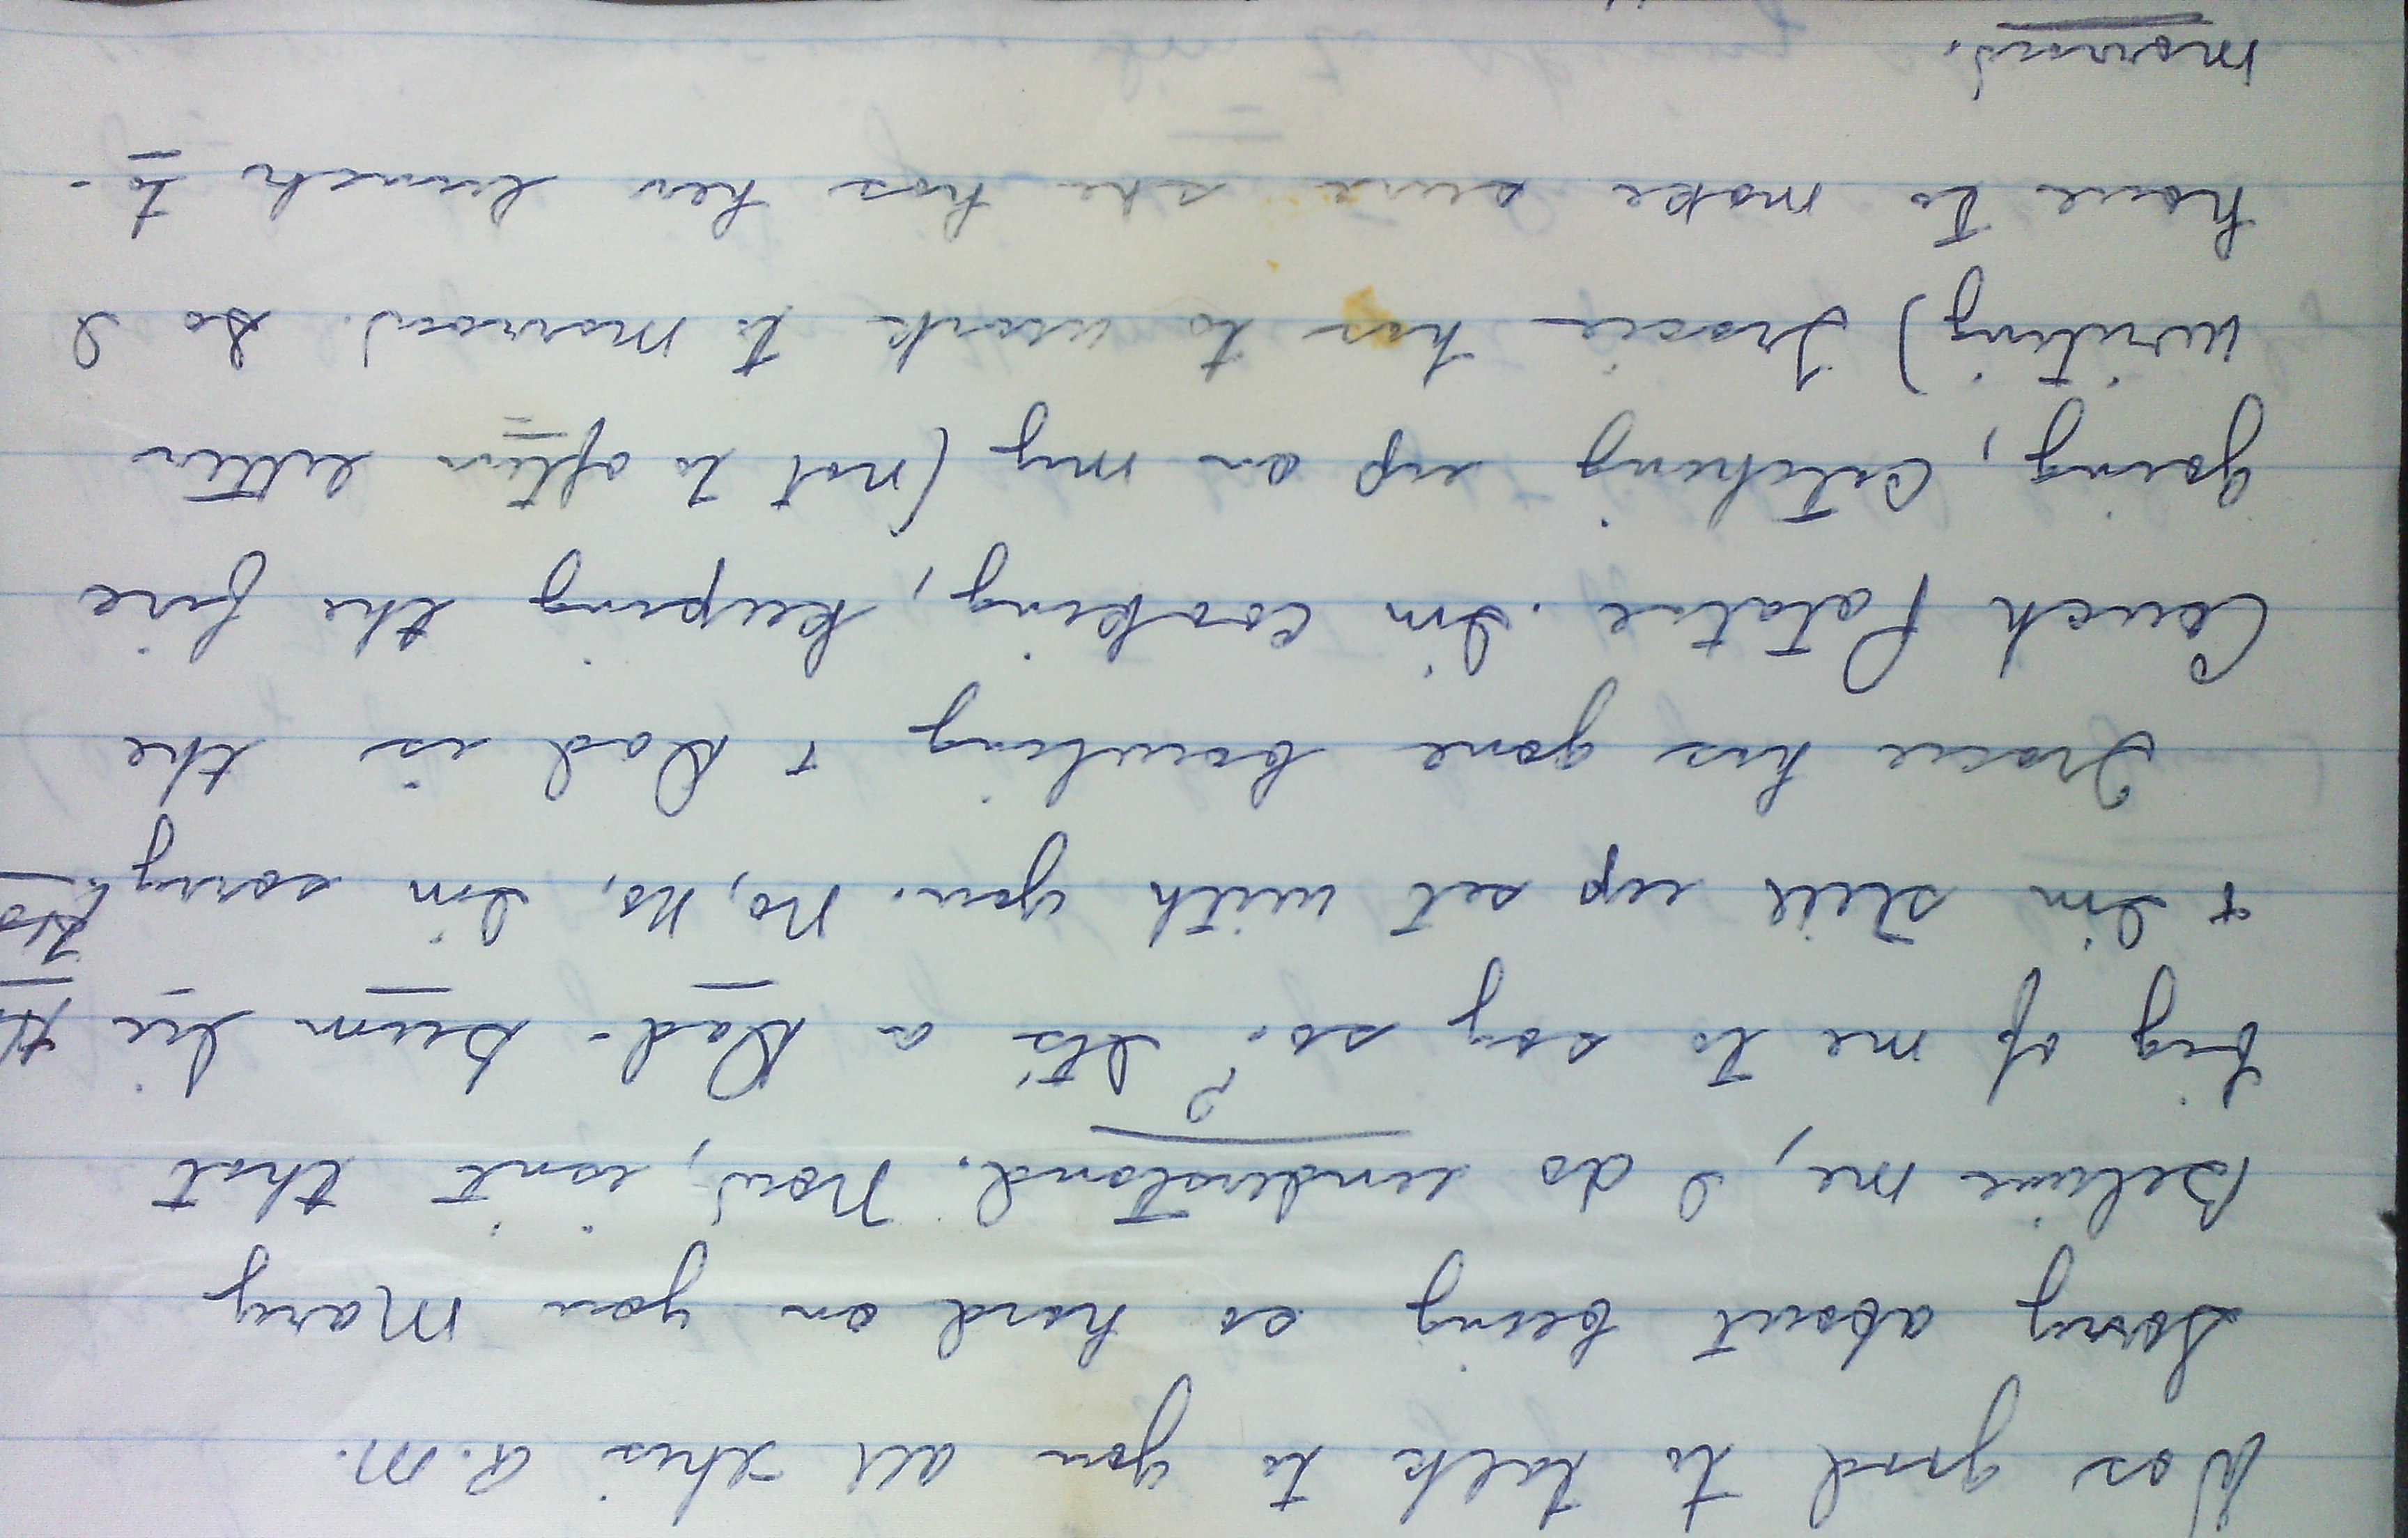 Was good to talk to you all this a.m.
Sorry about being so hard on you Mary
Believe me, I do understand. Now, isnt that
big of me to say so? Its a Dad-bum lie
& Im still up set with you. No, no, Im sorry
Tracie has gone bowling & Dad is the
Couch Patatoe. Im cooking, keeping the fire
going, catching up on my (not to often letter
writing) Tracie has to work to morrow. So I
have to make sure she has her lunch to-
morrow.